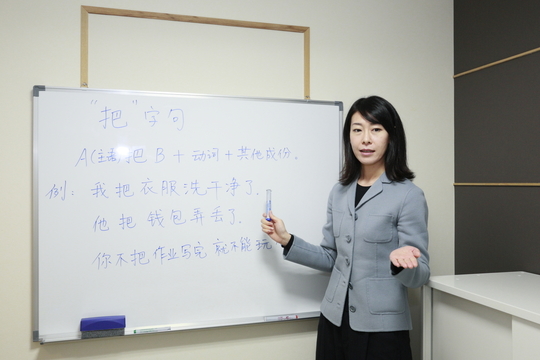 "把"字句
A(主语)把 B + 动词 + 其他成份。
例：我把衣服洗干净了.
他把钱包弄丢了.
你不把作业写完 就不能玩